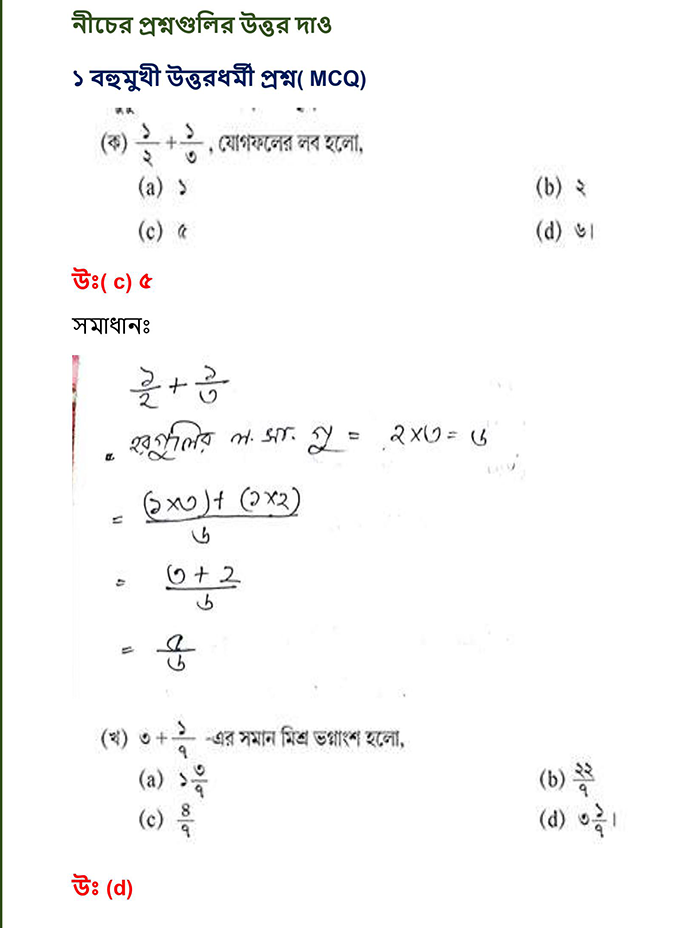 নীচের প্রশ্নগুলির উত্তর দাও
১ বহুমুখী উত্তরধর্মী প্রশ্ন( MCQ)
(ক) ১/২ + ১/৩ , যোগফলের লব হলো,
(a) ১ (b) ২
(c) ৫ (d) ৬।
উঃ( c) ৫
সমাধানঃ
১/২ + ১/৩
হরগুলির ল. সা. গু = ২×৩ = ৬
= (১×৩)+ (১×২)/৬
= ৩ + ২/৬
= ৫/৬
(খ) ৩ + ১/৭ -এর সমান মিশ্র ভগ্নাংশ হলো,
(a) ১ ৩/৭ (b) ২২/৭
(c) ৪/৭ (d) ৩ ১/৭।
উঃ (d)